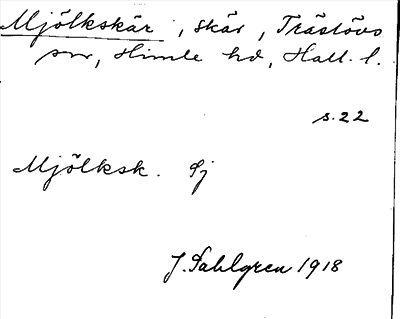 Mjölkskär, skär, Träslövs
sn, Himle hd, Hall. l.
s. 22
Mjölksk. Sj
J. Sahlgren 1918